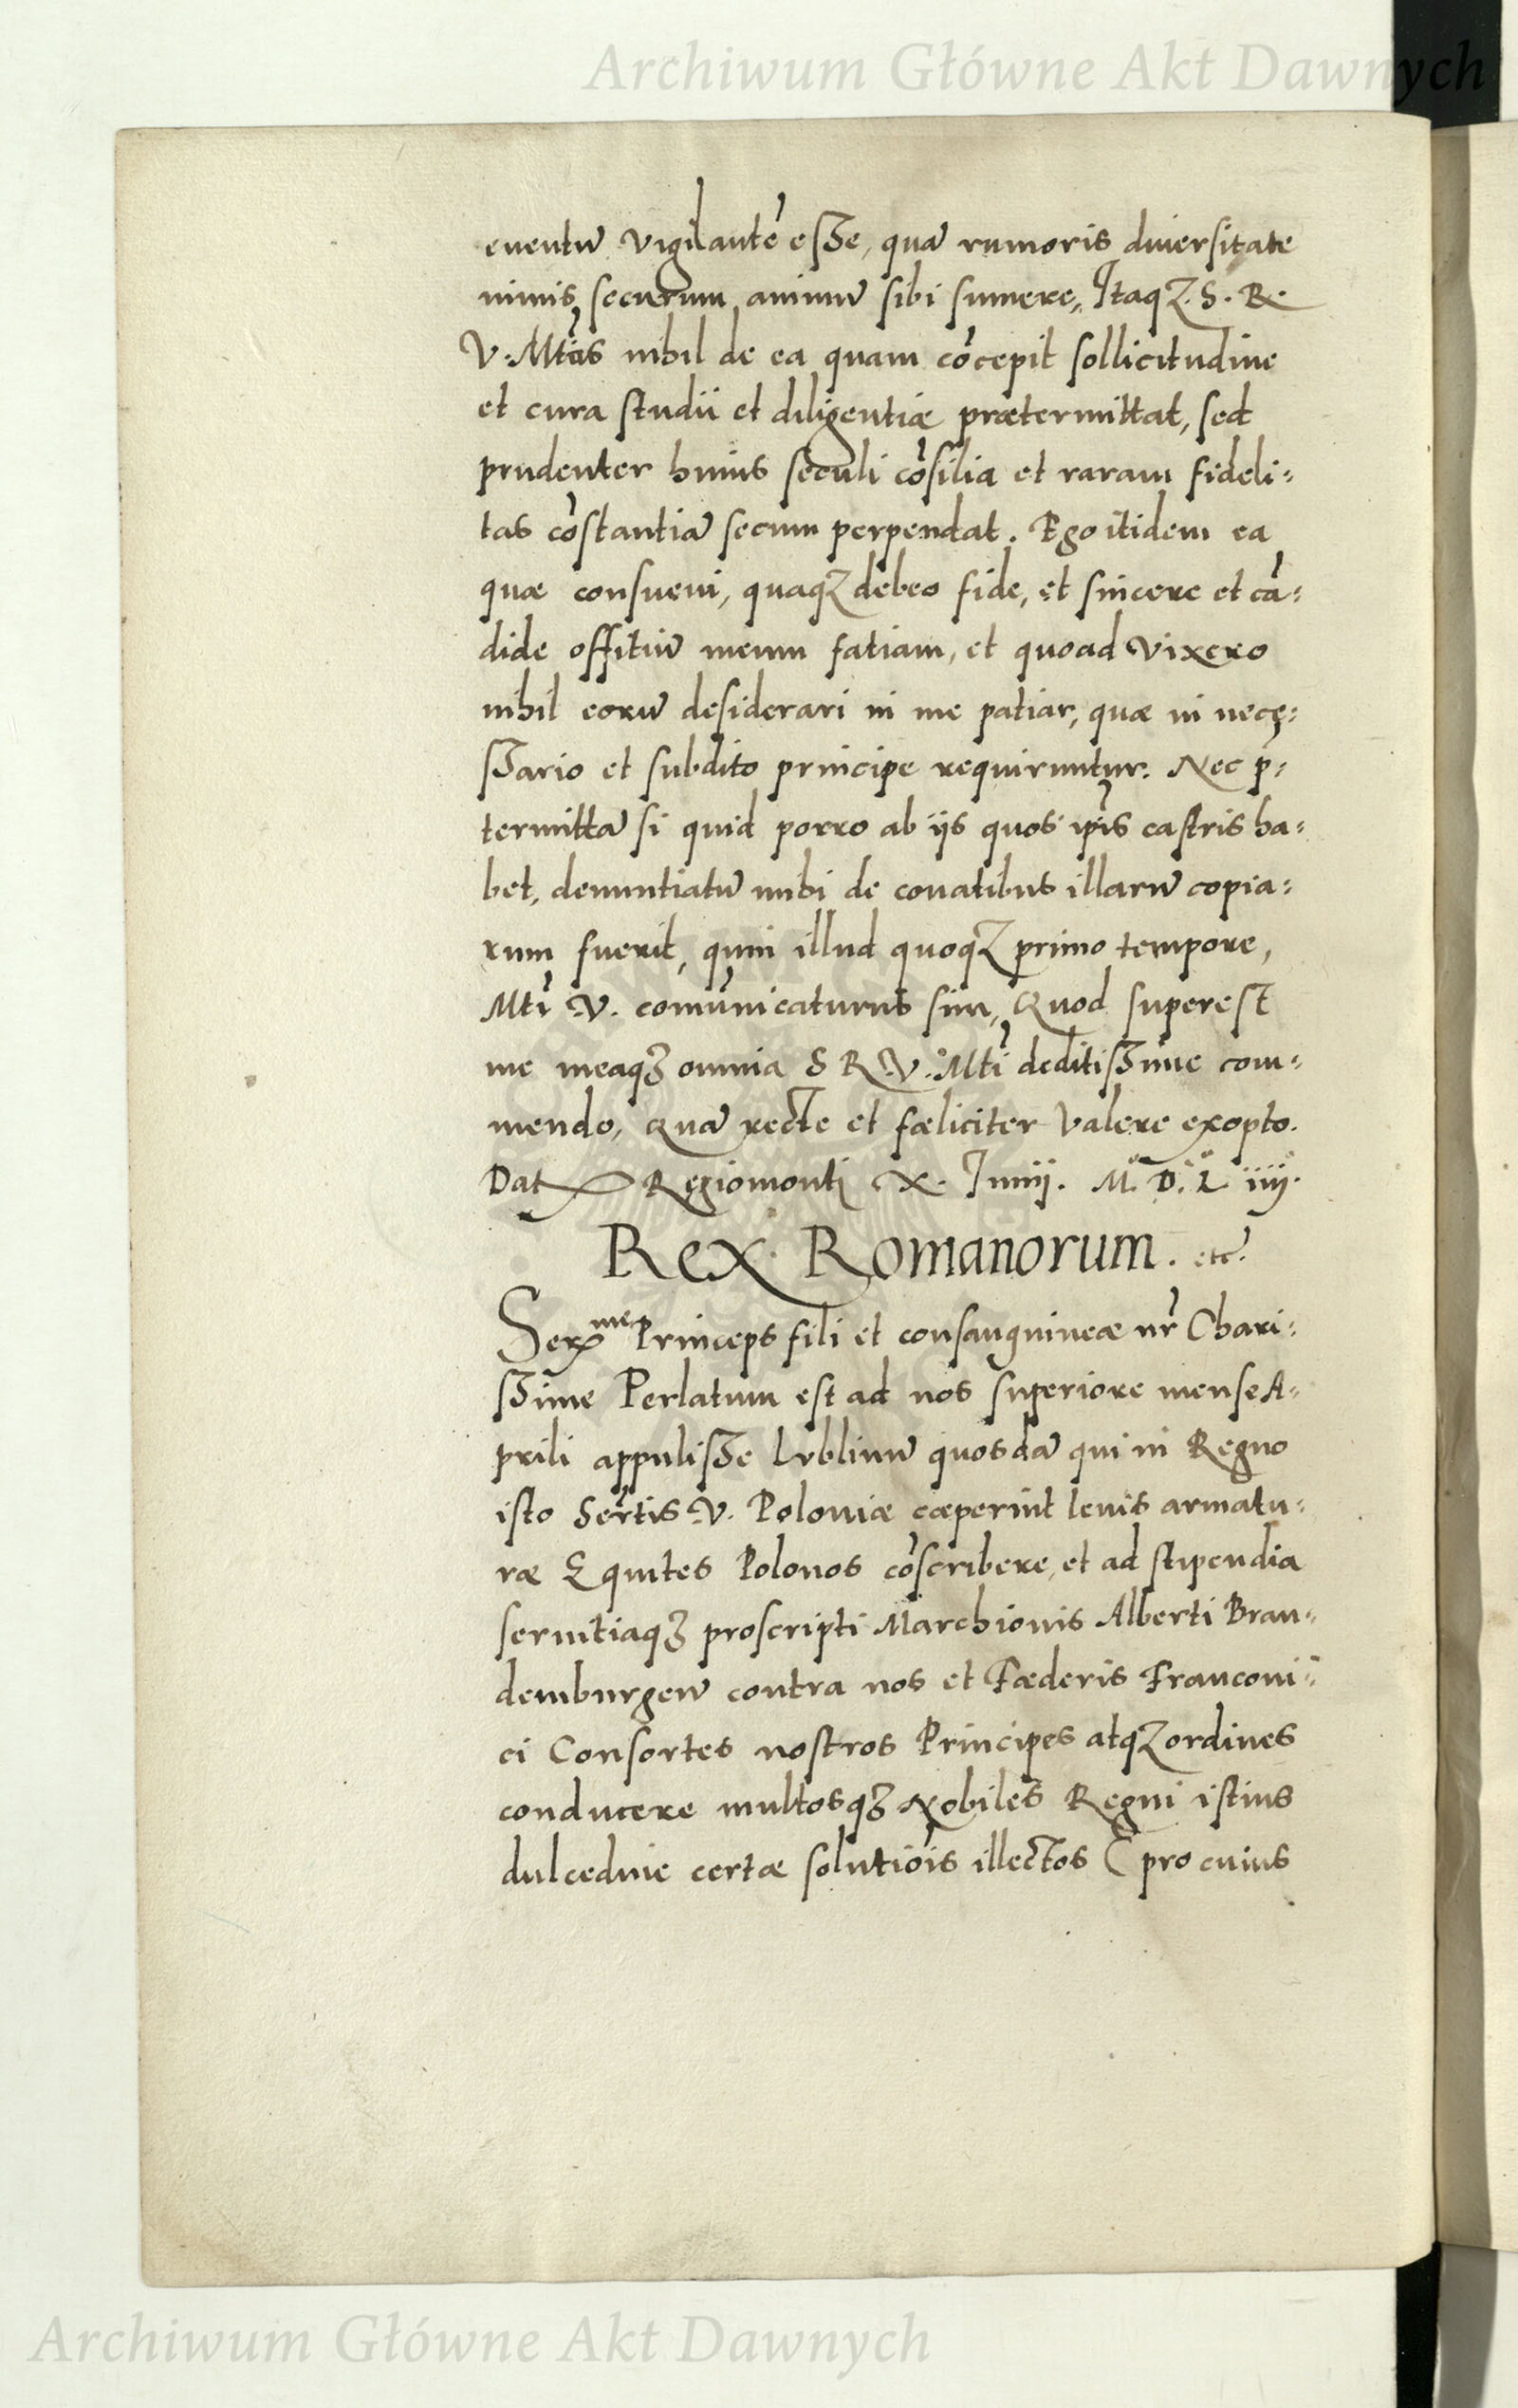 Archiwum Główne Akt Dawnych
euentũ vigilantẽ esse, quã rumoris diuersitate
nimis securum animũ sibi sumere, Itaqꝫ. S. R.
V. Mtãs nihil de ea quam cõcepit sollicitudine
et cura studii et diligentiæ prætermittat, sed
prudenter huius seculi cõsilia et raram fideli-
tas cõstantiã secum perpendat. Ego itidem ea
quæ consueui, quaqꝫ debeo fide, et sincere et cã-
dide offitiũ meum fatiam, et quoad vixero
nihil eorũ desiderari in me patiar, quæ in necę-
ssario et subdito principe requiruntur. Nec p̄-
termittã si quid porro ab iis quos ip̃is castris ha-
bet, denuntiatũ mihi de conatibus illarũ copia-
rum fuerit, quin illud quoqꝫ primo tempore,
Mti V. comũnicaturus sim, Quod superest
me meaqꝫ omnia S R. V. Mti deditissime com-
mendo, Quã recte et fæliciter valere exopto.
Dat Regiomonti X. Iunij. M. D. L iiij.
Rex Romanorum. etc.
Serme Princeps fili et consanguineæ nr̃ Chari-
ssime Perlatum est ad nos superiore mense A-
prili appulisse Lublinũ quosdã qui in Regno
isto Serttis V. Poloniæ cæperint leuis armatu-
ræ Equites Polonos cõscribere, et ad stipendia
seruitiaqꝫ proscripti Marchionis Alberti Bran-
demburgeñ contra nos et Fæderis Franconi-
ci Consortes nostros Principes atqꝫ ordines
conducere multosqꝫ Nobiles Regni istius
dulcedine certæ solutiõis illectos (pro cuius
Archiwum Główne Akt Dawnych